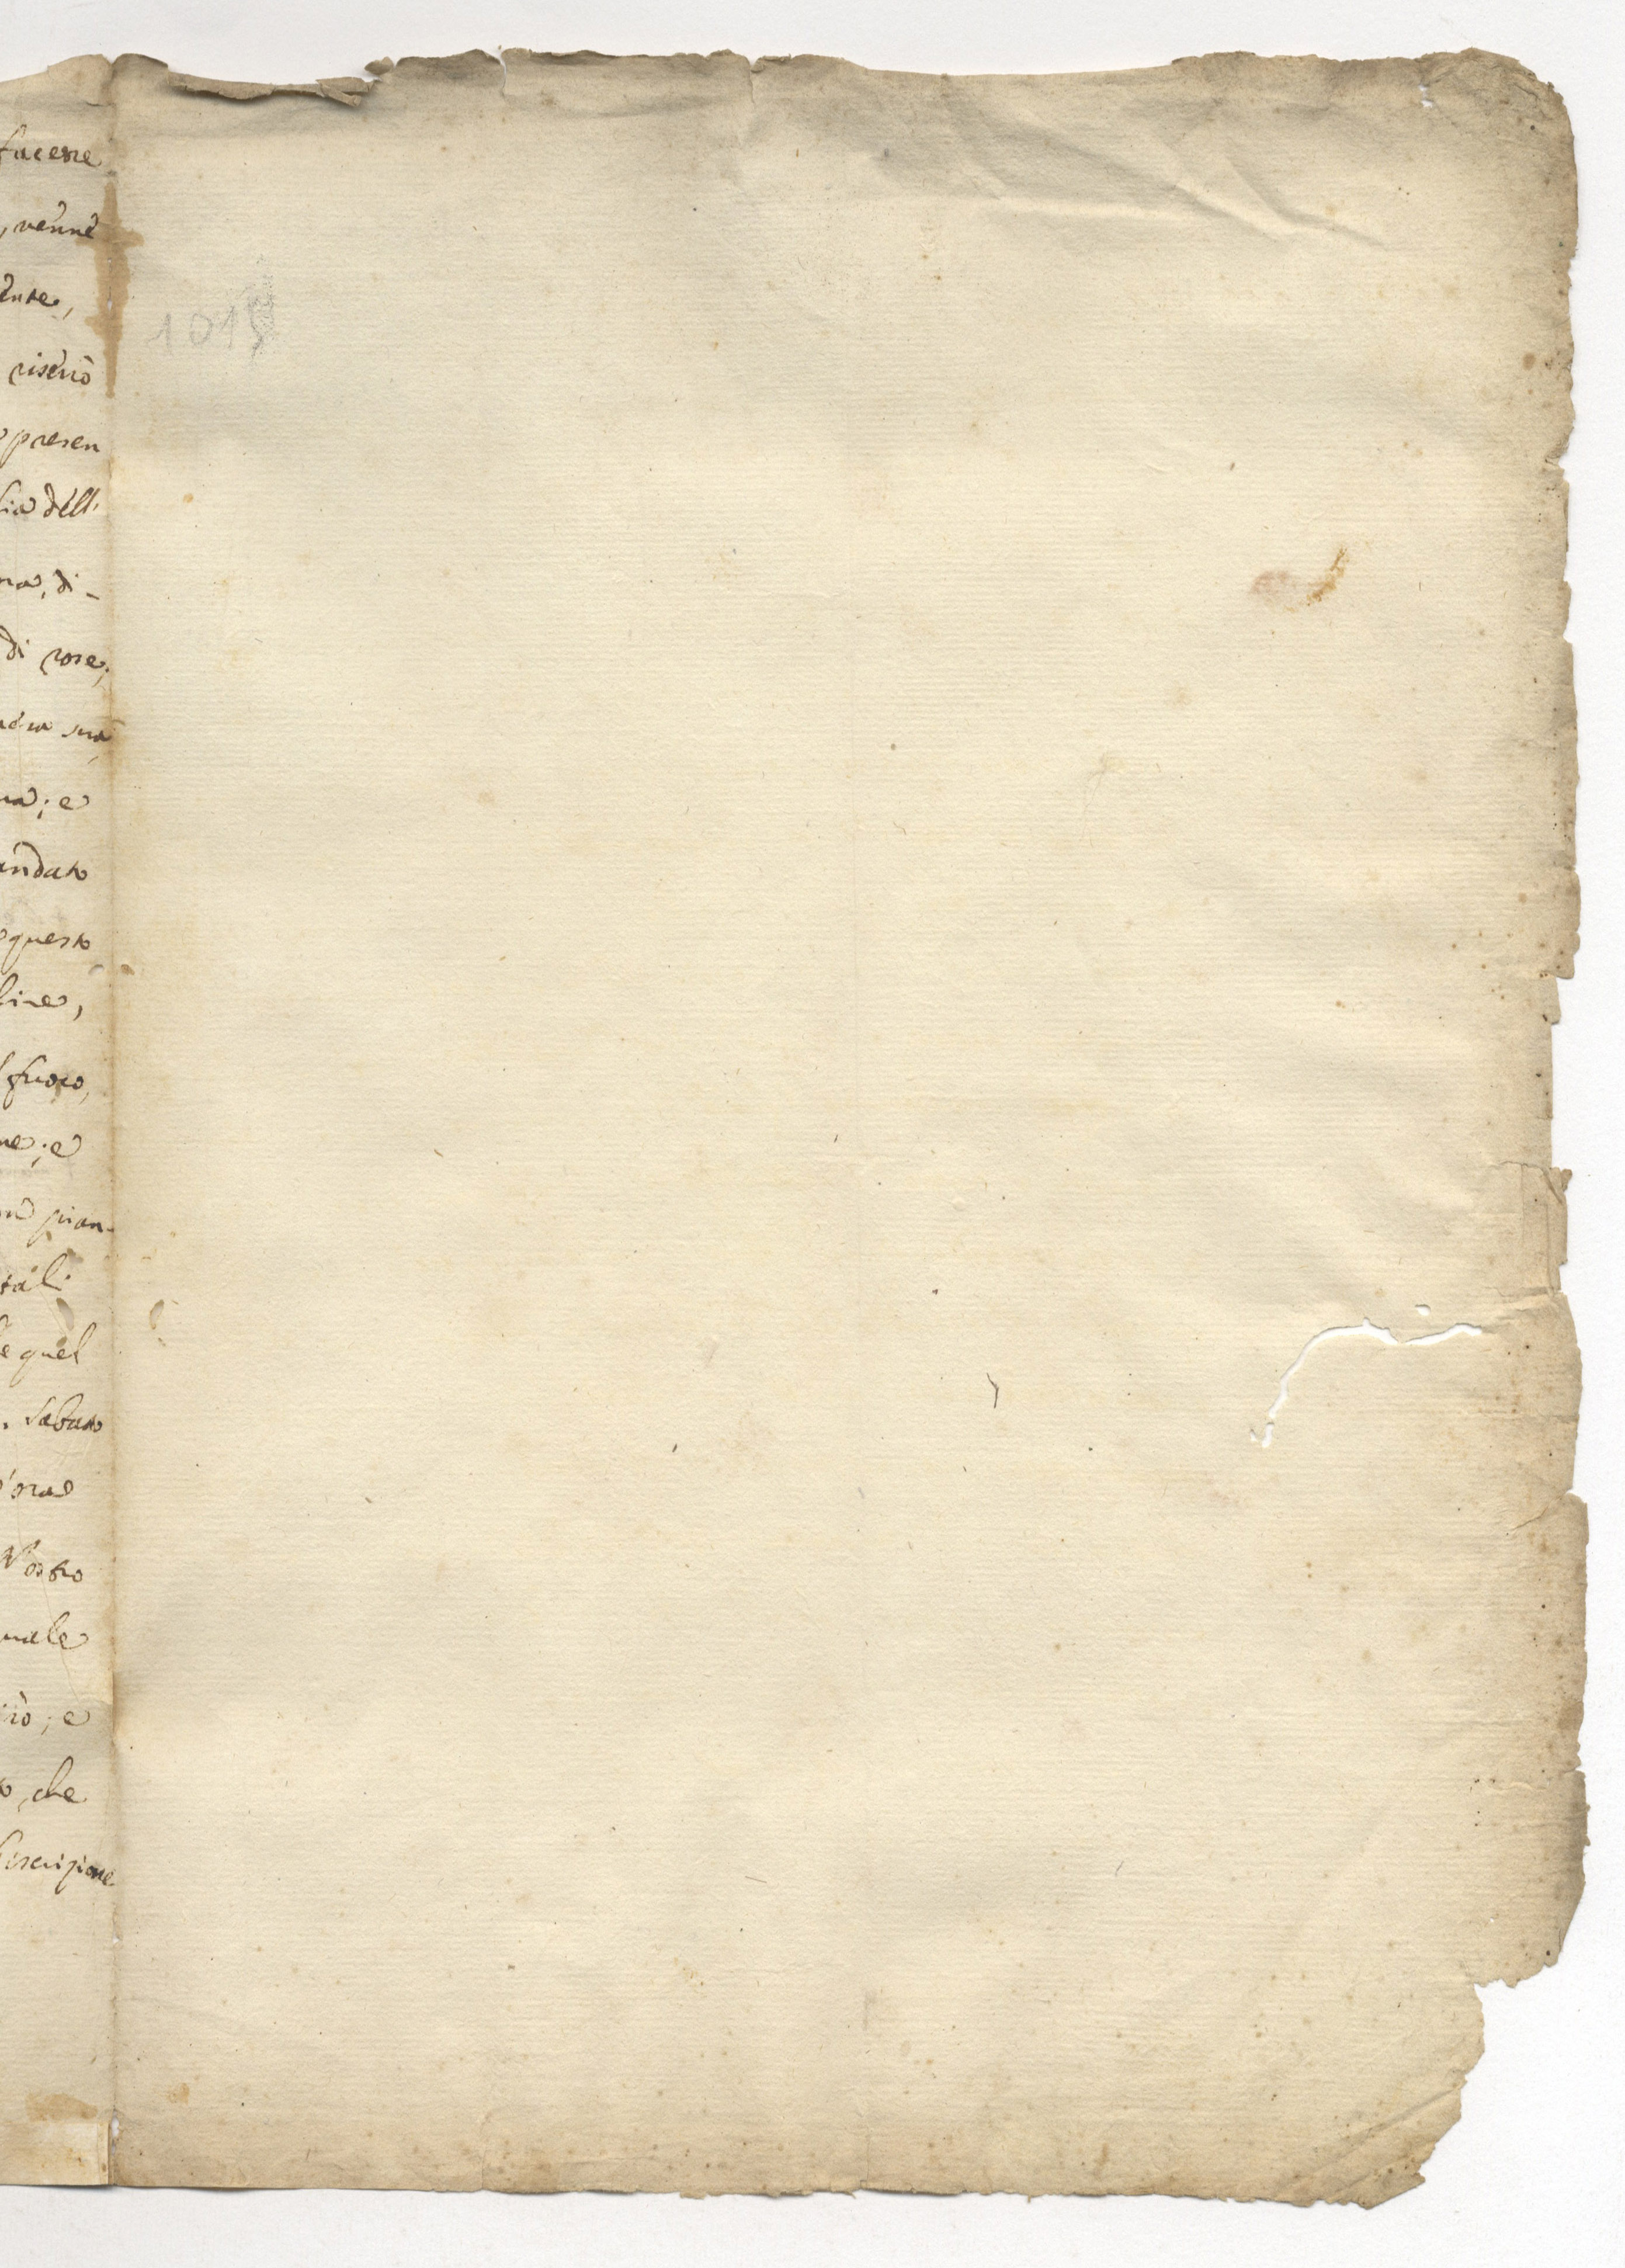 facesse
, venne
ente,
riserrò
presen
sia dell'
na, di-
di rose;
sua
na; e
andato
questo
line,
fuoco,
ne; e
pian-
tali
e quel
. Sabato
'ora
Nostro
nale
rò; e
o, che
iscrizione
101